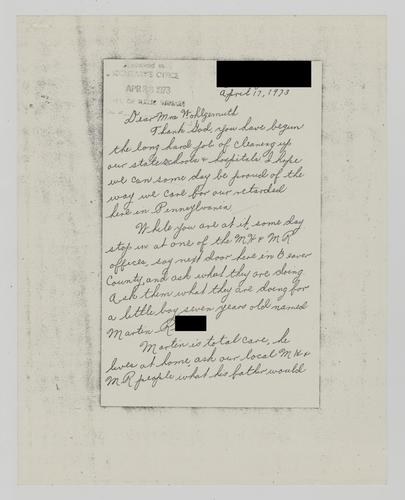 SECRETARY'S OFFICE
APR 23 1973
OF PUBLIC WELFARE
April 17, 1973
Dear Mrs Wohlgemuth
Thank God, you have begun
the long hard job of cleaning up
our state schools & hospitals. I hope
we can some day be proud of the
way we care for our retarded
here in Pennsylvania.
While you are at it, some day
stop in at one of the MH & MR
offices, say next door here in Beaver
County, and ask what they are doing.
Ask them what they are doing for
a little boy seven years old named
Marten R
Marten is total care, he
lives at home, ask our local MH &
MR people what his father would